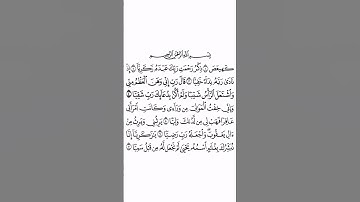 بِسْمِ اللَّهِ الرَّحْمَٰنِ الرَّحِيمِ
كٓهيعٓصٓ ١ ذِكْرُ رَحْمَتِ رَبِّكَ عَبْدَهُۥ زَكَرِيَّآ ٢ إِذْ
نَادَىٰ رَبَّهُۥ نِدَآءً خَفِيًّا ٣ قَالَ رَبِّ إِنِّى وَهَنَ ٱلْعَظْمُ مِنِّى
وَٱشْتَعَلَ ٱلرَّأْسُ شَيْبًا وَلَمْ أَكُنۢ بِدُعَآئِكَ رَبِّ شَقِيًّا ٤
وَإِنِّى خِفْتُ ٱلْمَوَٰلِىَ مِن وَرَآءِى وَكَانَتِ ٱمْرَأَتِى
عَاقِرًا فَهَبْ لِى مِن لَّدُنكَ وَلِيًّا ٥ يَرِثُنِى وَيَرِثُ مِنْ
ءَالِ يَعْقُوبَ وَٱجْعَلْهُ رَبِّ رَضِيًّا ٦ يَٰزَكَرِيَّآ إِنَّا
نُبَشِّرُكَ بِغُلَٰمٍ ٱسْمُهُۥ يَحْيَىٰ لَمْ نَجْعَل لَّهُۥ مِن قَبْلُ سَمِيًّا ٧